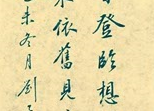 登臨想
依舊見
未冬月劉